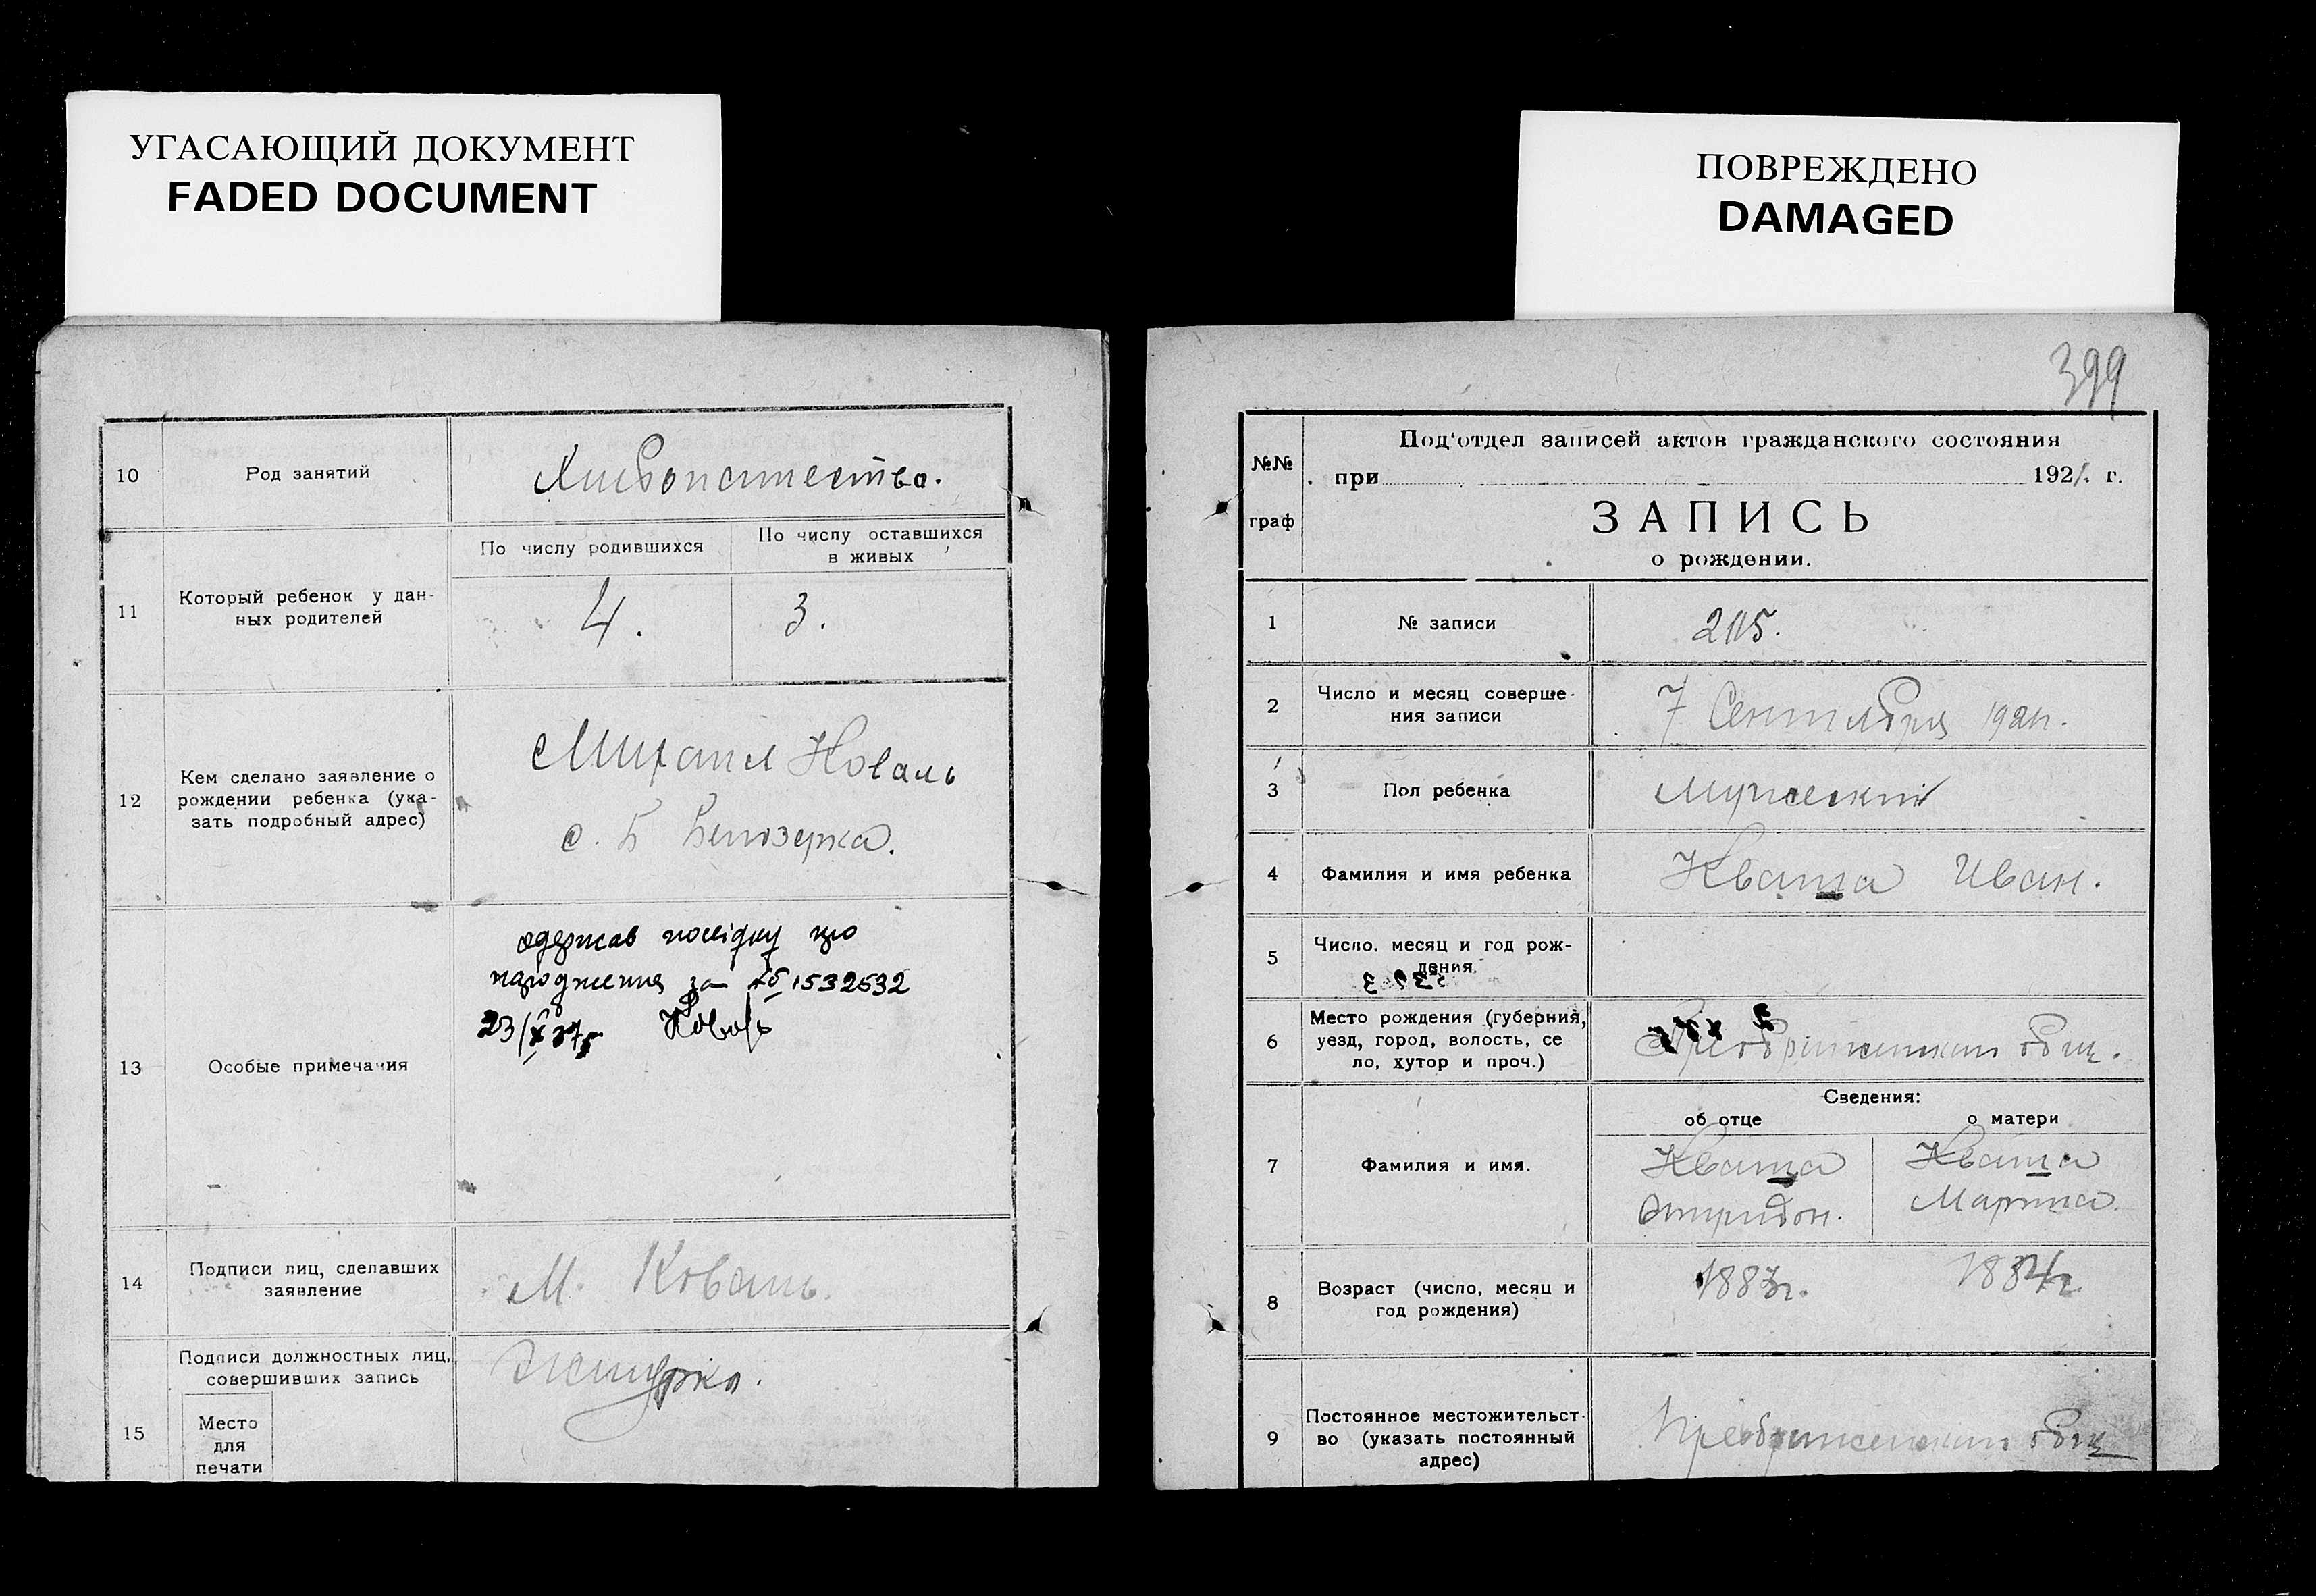 УГАСАЮЩИЙ ДОКУМЕНТ
FADED DOCUMENT
10
Род занятий
Хлибопашество.
11
Который ребенок у дан-
ных родителей
По числу родившихся
По числу оставшихся
в живых
4.
3.
12
Кем сделано заявление о
рождении ребенка (ука-
зать подробный адрес)
Михаил Коваль
с. Б Белозерка.
13
Особые примечания
одержав посвідку про
народження за № 1532532
23/X 37р Коваль
14
Подписи лиц, сделавших
заявление
М. Коваль.
15
Подписи должностных лиц,
совершивших запись
Место
для
печати
ПОВРЕЖДЕНО
DAMAGED
399
№№
граф
Под'отдел записей актов гражданского состояния
при 1921. г.
ЗАПИСЬ
о рождении.
1
№ записи
205.
2
Число и месяц соверше-
ния записи
7 Сентября 1921г.
3
Пол ребенка
Мужеский
4
Фамилия и имя ребенка
Кваша Иван.
5
Число. месяц и год рож-
дения.
6
Место рождения (губерния,
уезд, город, волость, се
ло, хутор и проч.)
общ.
7
Фамилия и имя.
Сведения:
об отце
о матери
Кваша
Спиридон.
Кваша
Марина.
8
Возраст (число, месяц и
год рождения)
1883г.
1884г
9
Постоянное местожительст-
во (указать постоянный
адрес)
общ